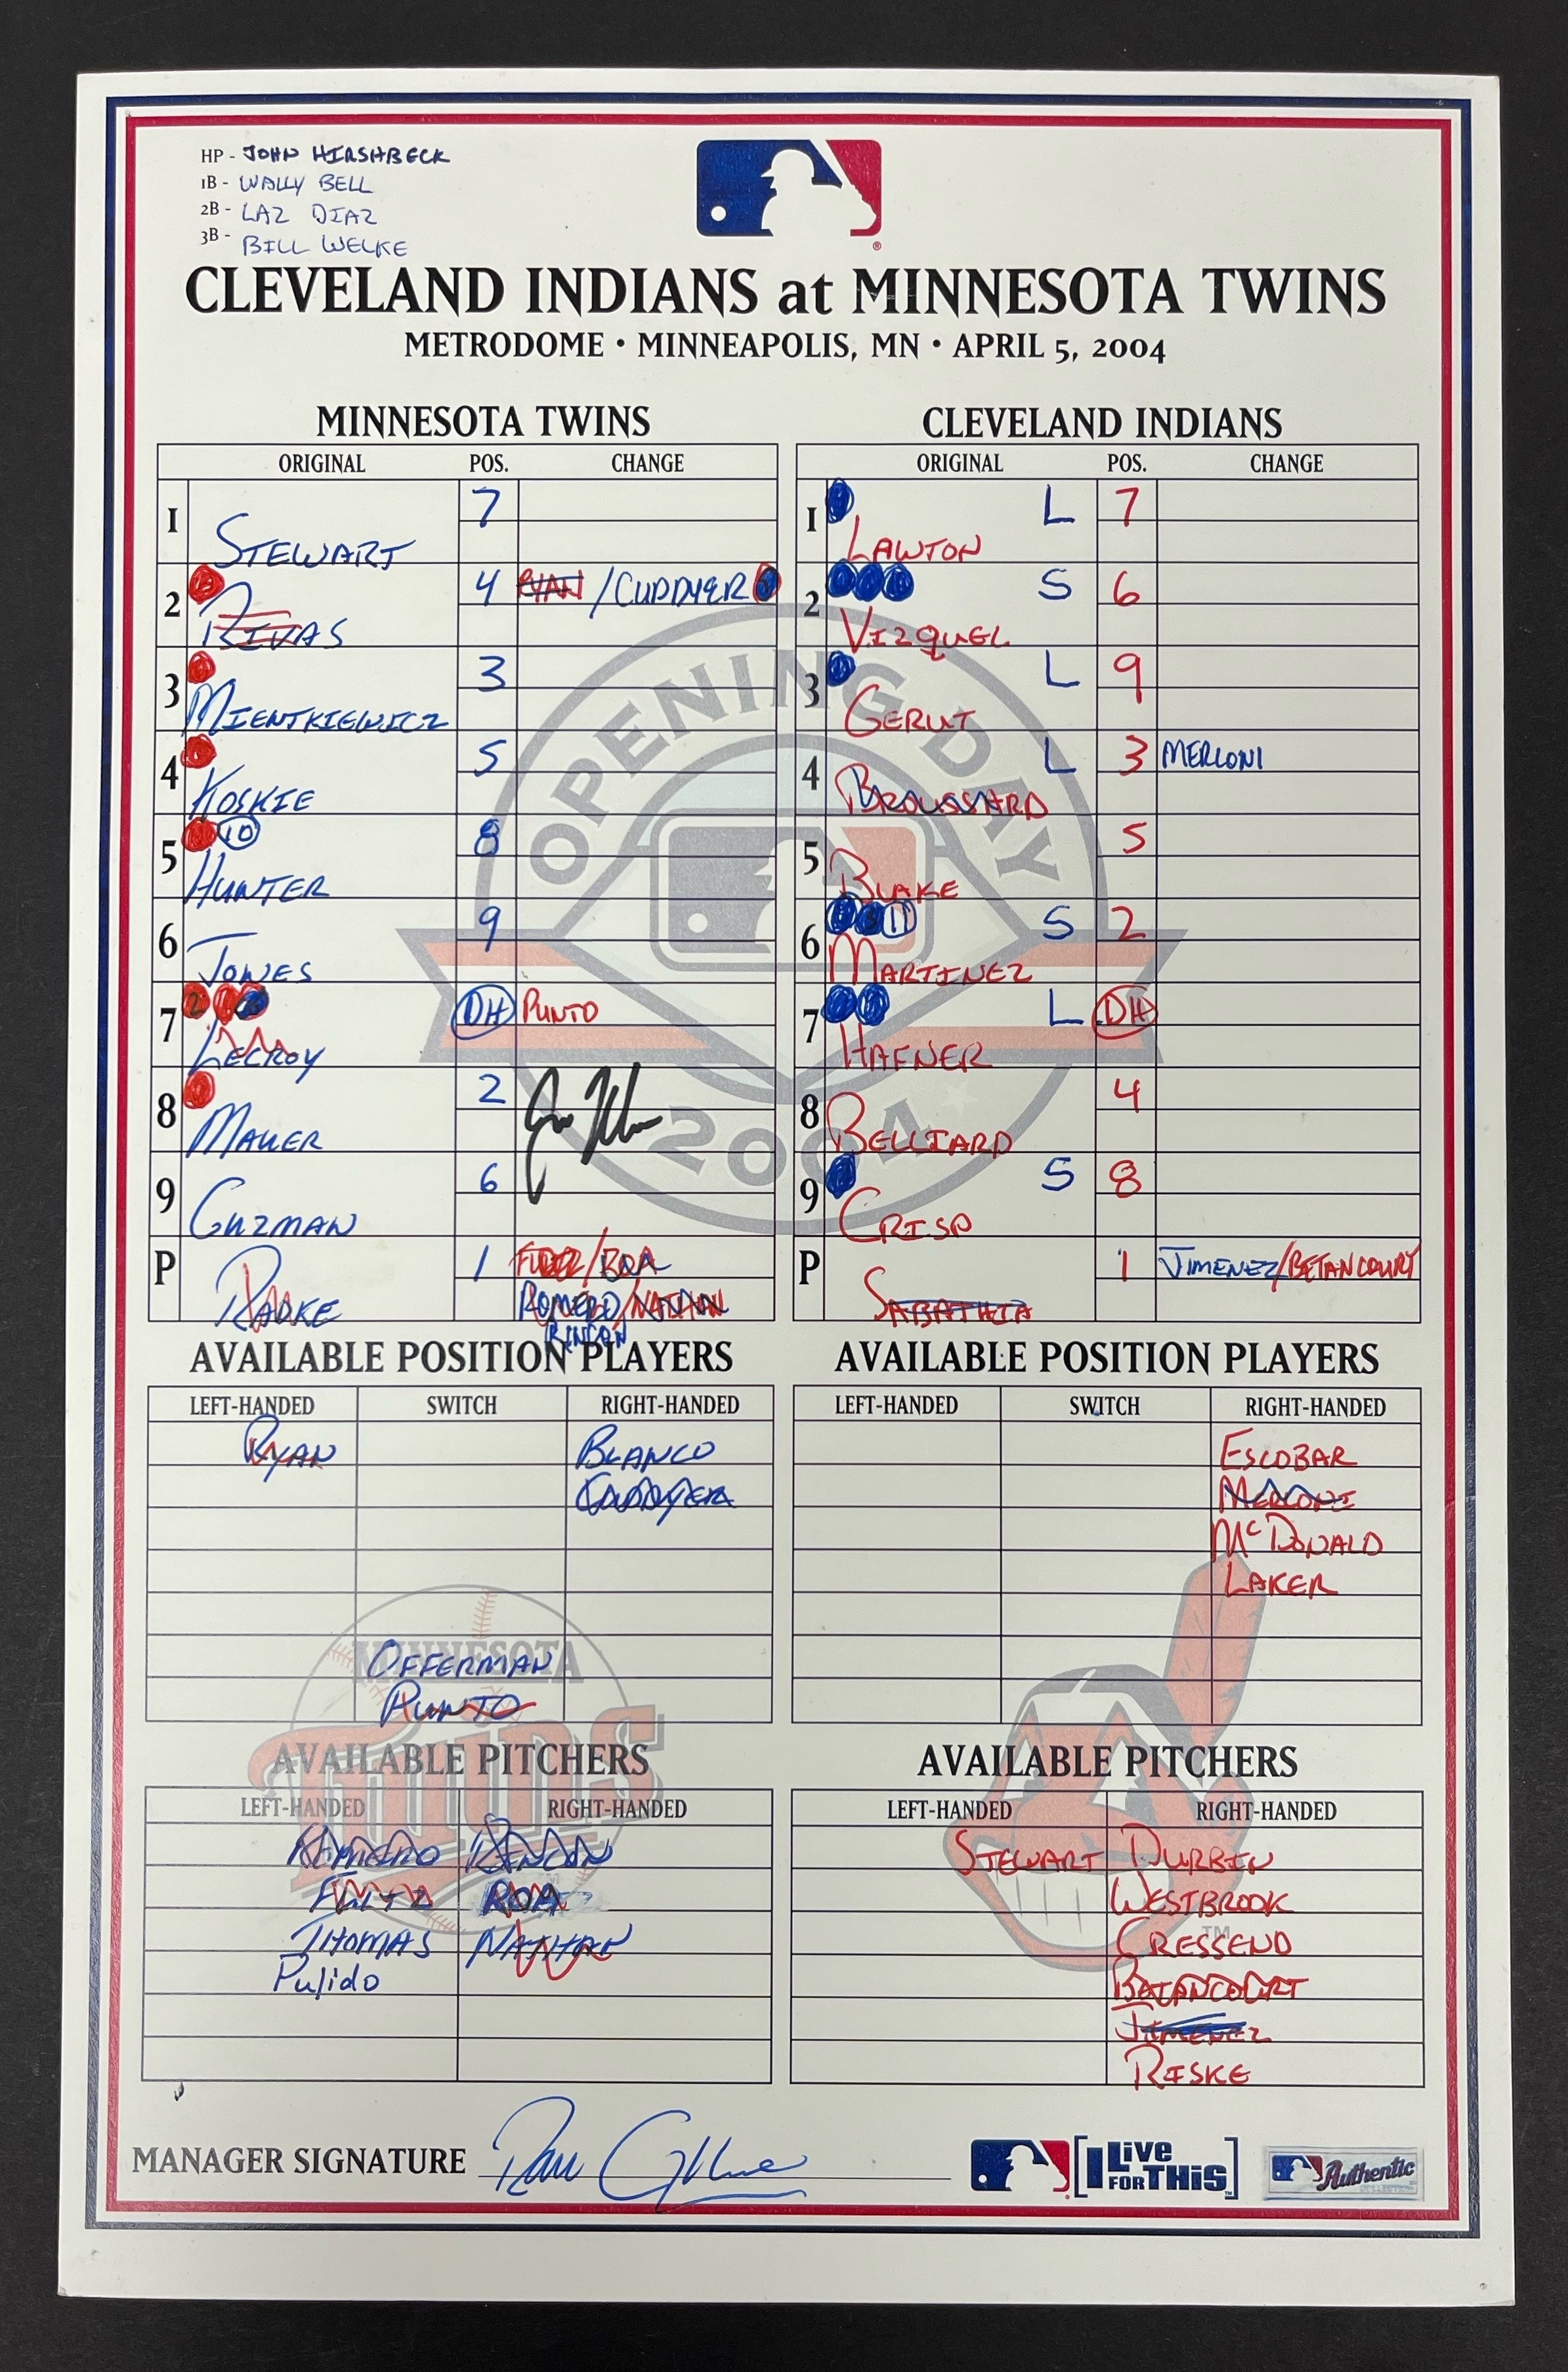 HP - JOHN HIRSHBECK
1B - WALLY BELL
2B - LAZ DIAZ
3B - BILL WELKE
CLEVELAND INDIANS at MINNESOTA TWINS
METRODOME • MINNEAPOLIS, MN • APRIL 5, 2004
MINNESOTA TWINS
ORIGINAL POS. CHANGE
1 STEWART 7
2 RIVAS 4 RYAN / CUDDYER
3 MIENTKIEWICZ 3
4 KOSKIE 5
5 10 HUNTER 8
6 JONES 9
7 LECROY DH PUNTO
8 MAUER 2
9 GUZMAN 6
P RADKE 1 /ROA
ROMERO/NATHAN
RINCON
CLEVELAND INDIANS
ORIGINAL POS. CHANGE
1 LAWTON L 7
2 VIZQUEL S 6
3 GERUT L 9
4 BROUSSARD L 3 MERLONI
5 BLAKE 5
6 11 MARTINEZ S 2
7 HAFNER L DH
8 BELLIARD 4
9 CRISP S 8
P SABATHIA 1 JIMENEZ/BETANCOURT
OPENING DAY
2004
AVAILABLE POSITION PLAYERS
LEFT-HANDED SWITCH RIGHT-HANDED
RYAN BLANCO
CUDDYER
OFFERMAN
PUNTO
AVAILABLE POSITION PLAYERS
LEFT-HANDED SWITCH RIGHT-HANDED
ESCOBAR
MERLONI
McDONALD
LAKER
MINNESOTA
TWINS
AVAILABLE PITCHERS
LEFT-HANDED RIGHT-HANDED
ROMERO RINCON
FULTZ ROA
THOMAS NATHAN
Pulido
AVAILABLE PITCHERS
LEFT-HANDED RIGHT-HANDED
STEWART DURBIN
WESTBROOK
CRESSEND
BATANCOURT
JIMENEZ
RISKE
TM
MANAGER SIGNATURE
I LiVE FOR THiS
Authentic